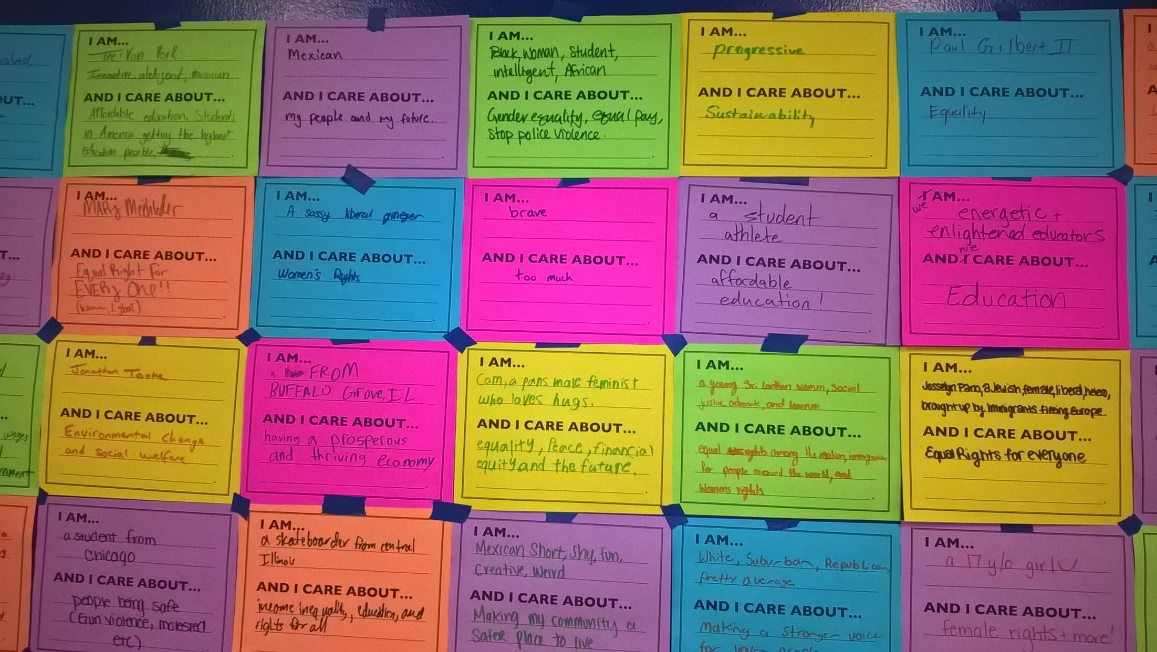 I AM...
Innovative, intelligent, musician
AND I CARE ABOUT...
Affordable education, Students
in America getting the highest
Education possible,
I AM...
Mexican
AND I CARE ABOUT...
my people and my future.
I AM...
Black, Woman, Student,
intelligent, African
AND I CARE ABOUT...
Gender equality, equal pay,
stop police violence.
I AM...
progressive
AND I CARE ABOUT...
Sustainability
I AM...
Paul Gilbert II
AND I CARE ABOUT...
Equality
I AM...
MARy
AND I CARE ABOUT...
Equal Right For
EVERY ONE!!
I AM...
A sassy liberal ginger
AND I CARE ABOUT...
Women's Rights
I AM...
brave
AND I CARE ABOUT...
too much
I AM...
a student
athlete
AND I CARE ABOUT...
affordable
education!
I AM...
we
energetic +
enlightened educators
we
AND I CARE ABOUT...
Education
I AM...
Jonathan
AND I CARE ABOUT...
Environmental Change
and social welfare
I AM...
a FROM
BUFFALO Grove, IL
AND I CARE ABOUT...
having a prosperous
and thriving economy
I AM...
Cam, a pans male feminist
who loves hugs.
AND I CARE ABOUT...
equality, Peace, financial
equity and the future.
I AM...
a young Sri Lankan woman, social
justice advocate, and
AND I CARE ABOUT...
equal rights among the nation, immigration
for people around the world, and
womens rights
I AM...
a Jewish, female, liberal,
brought up by immigrants fleeing Europe.
AND I CARE ABOUT...
Equal Rights for everyone
wages
I AM...
a student from
Chicago
AND I CARE ABOUT...
people being safe
(Gun violence, molested
etc)
I AM...
a skateboarder from central
Illinois
AND I CARE ABOUT...
income inequality, education, and
rights for all
I AM...
Mexican Short, Shy, fun,
Creative, Weird
AND I CARE ABOUT...
Making my community a
safer place to live
I AM...
White, Suburban, Republican
pretty average
AND I CARE ABOUT...
Making a stronger voice
I AM...
a 17 y/o girl
AND I CARE ABOUT...
female rights + more!